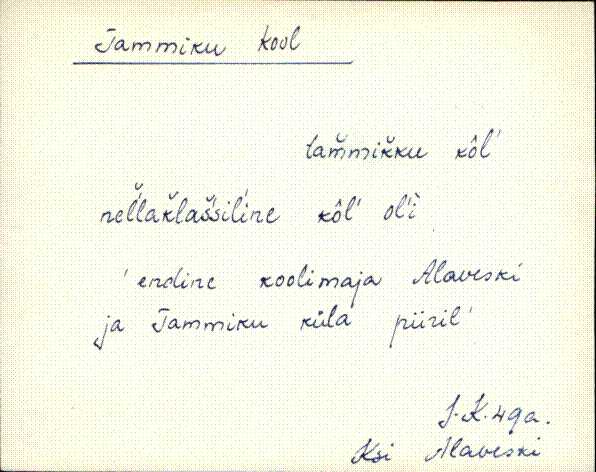 Tammiku kool
tam̆mik̆ku kôl'
nel̆'lak̆laš̆siĺine kôl' ol'ĭ
'endine koolimaja Alaveski
ja Tammiku küla piiril'
J.K. 49a.
Ksi Alaveski